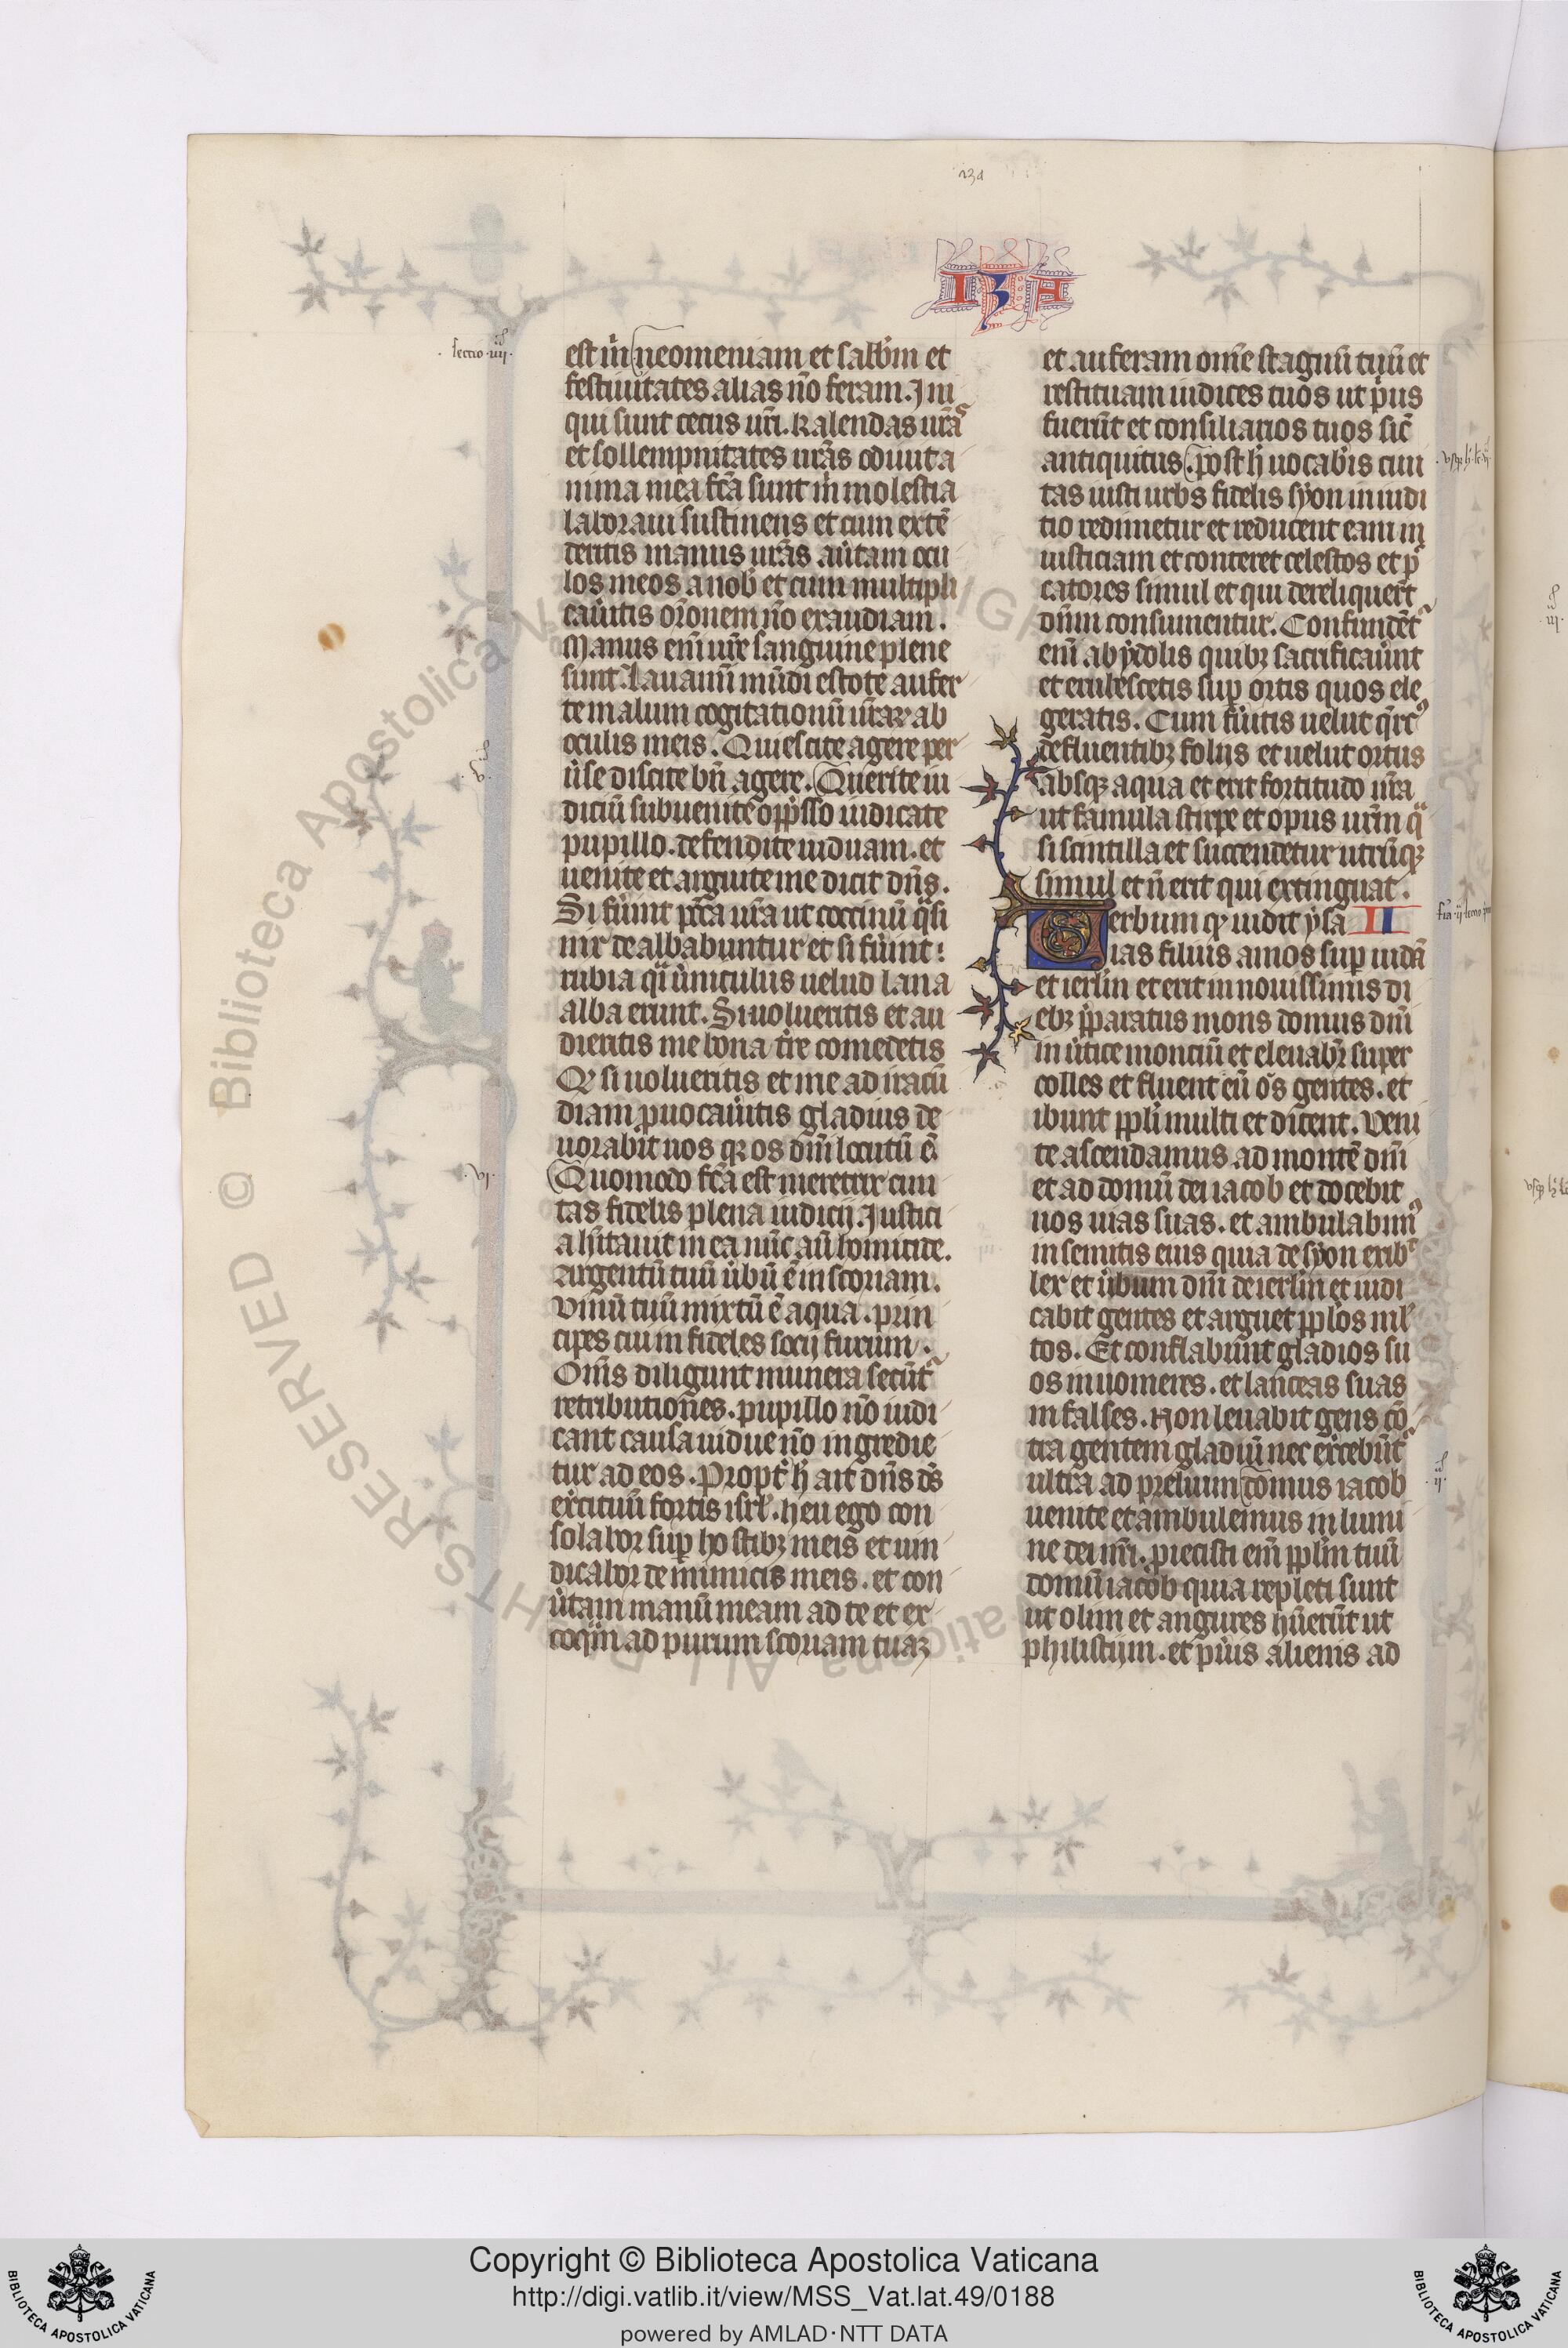 IZA
lectio iiij
est m̄ neomeniam et sabb̄m et
festiuitates alias nō feram. Ini
qui sunt cetus ur̄i. kalendas ur̄as
et sollempnitates ur̄as odiuit a
nima mea fc̄a sunt m̄ molestia
laboraui sustinens et cum extē
deritis manus ur̄as aūtam ocu
los meos a uob̄ et cum multipli
caūitis or̄onem nō exaudiam.
Manus enī ur̄e sanguine plene
sunt. Lauamī mūdi estote aufer
te malum cogitationū ur̄aꝝ ab
oculis meis. Quiescite agere per
ūse discite bn̄ agere. Querite iu
diciū subuenite opp̄sso iudicate
pupillo. defendite uiduam. et
uenite et arguite me dicit dn̄s.
Si fūint pc̄ca ur̄a ut coccinū q̄si
nix dealbabuntur et si fūint:
rubra q̄i ūmiculus uelud lana
alba erunt. Si uolueritis et au
dieritis me bona tr̄e comedetis
Qꝫ si nolueritis et me ad iracū
diam ꝓuocaūitis gladius de
uorabit uos qꝛ os dn̄i locutū ē
vj.
Quomodo fc̄a est meretrix ciui
tas fidelis plena iudicij. Iustici
a h̄itauit in ea nūc aū homicide.
argentū tuū ūsū ē in scoriam.
vinū tuū mixtū ē aqua. prin
cipes tui infideles socij furum.
Om̄s diligunt munera secūt̄
retributiōnes. pupillo nō iudi
cant causa uidue nō ingredie
tur ad eos. Propt̄ h̄ ait dn̄s d̄s
ex̄cituū fortis isrl̄. heu ego con
solabor suꝑ hostibꝫ meis et uin
dicabor de inimicis meis. et con
ūtam manū meam ad te et ex
coq̄m ad purum scoriam tuaꝫ
et auferam om̄e stagnū tuū et
restituam iudices tuos ut p̄us
fuerūt et consiliarios tuos sic̄
antiquitus. post h̄ uocab̄is ciui
tas iusti urbs fidelis sẏon in iudi
tio redimetur et reducent eam in
iusticiam et conteret celestos et p̄
catores simul et qui dereliquer̄t
dn̄m consumentur. Confundēt̄
enī ab ẏdolis quibꝫ sacrificaūnt
et erubescetis suꝑ ortis quos ele
geratis. Cum fūitis uelut q̄rc᷒
defluentibꝫ folijs et uelut ortus
absqꝫ aqua et erit fortitudo ur̄a
ut famula stupe et opus ur̄m q̄
si scintilla et succendetur utrūqꝫ
simul et n̄ erit qui extinguat.
Verbum qꝫ uidit ẏsa II
ias filius amos suꝑ iudā
et ierl̄m et erit in nouissimis di
ebꝫ p̄paratus mons domus dn̄i
in ūtice monciū et eleuabr̄ super
colles et fluent eū ōs gentes. et
ibunt ppl̄i multi et dicent. Veni
te ascendamus ad montē dn̄i
et ad domū dei iacob et docebit
nos uias suas. et ambulabim᷒
in semitis eius quia de sẏon exib᷒
lex et ūbum dn̄i de ierl̄m et iudi
cabit gentes et arguet ppl̄os ml̄
tos. Et conflabunt gladios su
os in uomeres. et lanceas suas
in falses. Non leuabit gens cō
tra gentem gladiū nec ex̄cebūt̄
ultra ad prelium domus iacob
uenite et ambulemus in lumi
ne dei nr̄i. piecisti enī ppl̄m tuū
domū iacob quia repleti sunt
ut olim et angures hūerūt ut
philistijm. et pūis alienis ad
Copyright © Biblioteca Apostolica Vaticana
http://digi.vatlib.it/view/MSS_Vat.lat.49/0188
powered by AMLAD·NTT DATA
BIBLIOTECA APOSTOLICA VATICANA
BIBLIOTECA APOSTOLICA VATICANA